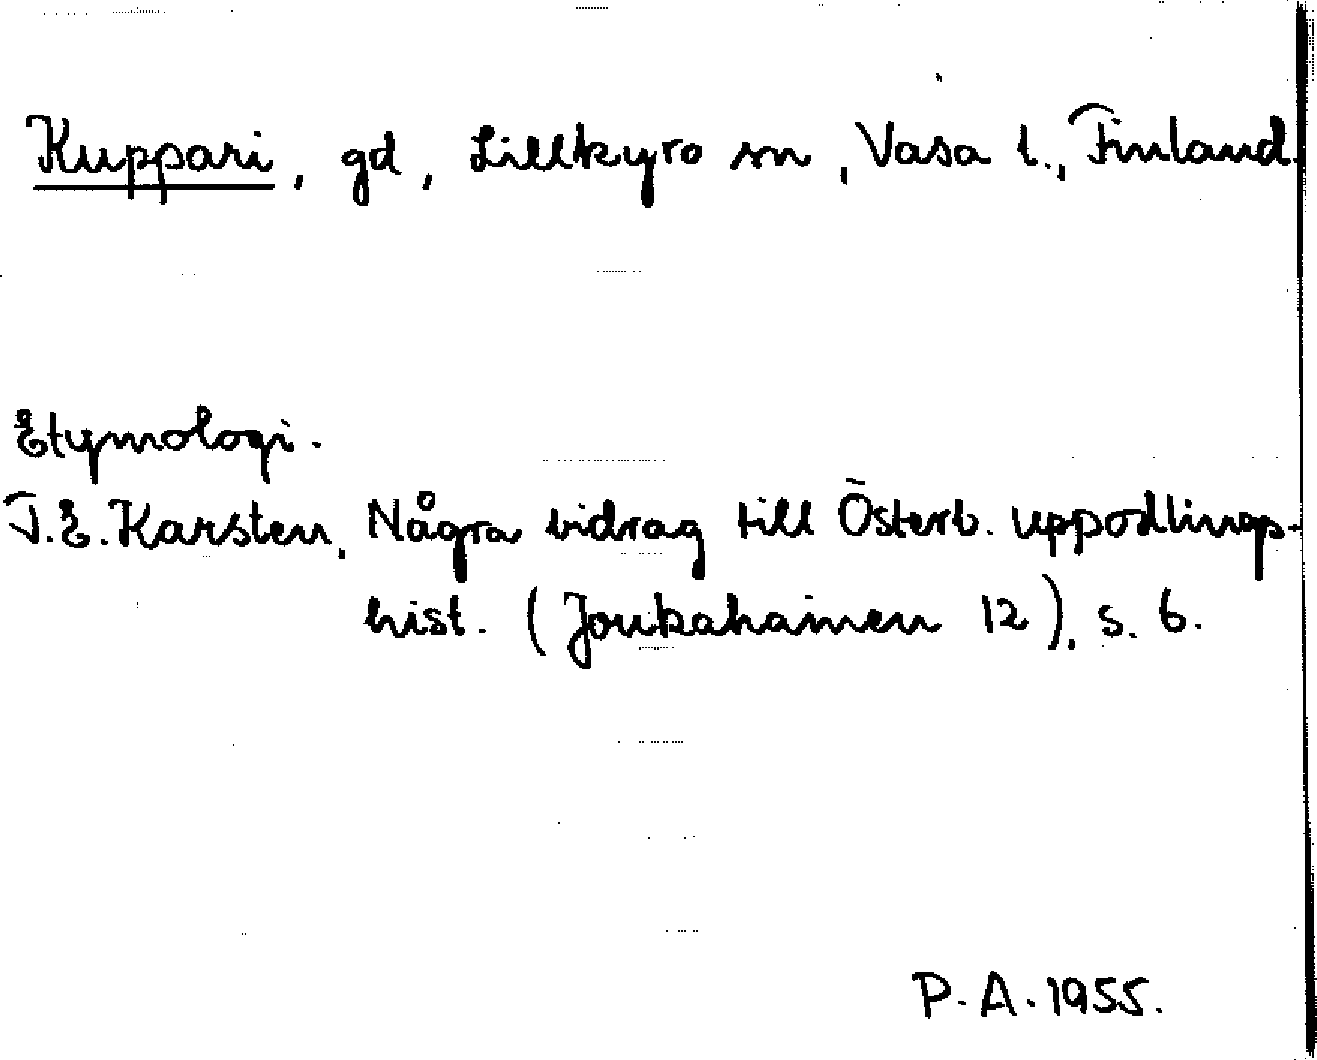 Kuppari, gd, Lillkyro sn, Vasa l., Finland.
Etymologi.
T.E. Karsten, Några bidrag till Österb. uppodlings-
hist. (Joukahainen 12), s. 6.
P.A. 1955.